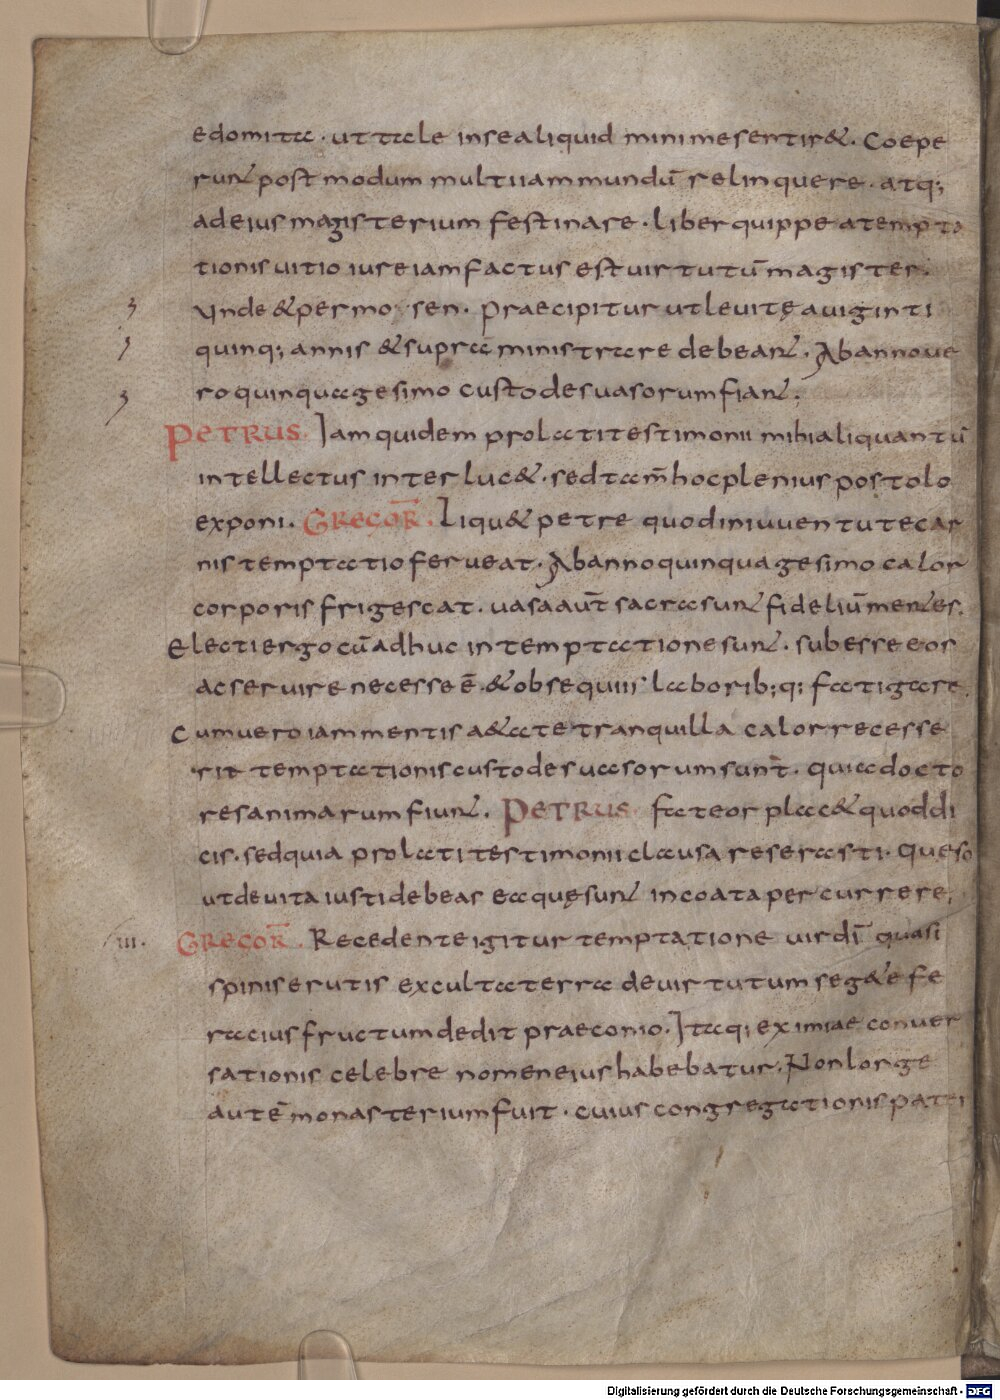 edomita. ut tale in se aliquid minime sentir&. Coepe
run̄ post modum multi iam mundū relinquere. atq;
ad eius magisterium festinare. liber quippe a tempta
tionis uitio iure iam factus est uirtutū magister.
Unde & per mosen. praecipitur ut leuitę a uiginti
quinq; annis & supra ministrare debean̄. Ab anno ue
ro quinquagesimo custodes uasorum fian̄.
PETRUS. Iam quidem prolati testimonii mihi aliquantū
intellectus interluc&. sed tam̄ hoc plenius postolo
exponi. GREGOR̄. Liqu& petre quod in iuuentute car
nis temptatio ferueat. Ab anno quinquagesimo calor
corporis frigescat. uasa aut̄ sacra sun̄ fideliū men̄es.
Electi ergo cū adhuc in temptatione sun̄. subesse eos
ac seruire necesse ē. & obsequiis laborib;q; fatigare.
Cum uero iam mentis a&ate tranquilla calor recesse
rit temptationis custodes uasorum sunt. quia docto
res animarum fiun̄. PETRUS fateor plac& quod di
cis. sed quia prolati testimonii clausa reserasti. queso
ut de uita iusti debeas ea quę sun̄ incoata percurrere.
III. GREGOR̄. Recedente igitur temptatione uir dī quasi
spinis erutis exculta terra de uirtutum seg&e fe
racius fructum dedit praeconio. Itaq; eximiae conuer
sationis celebre nomen eius habebatur. Non longe
autē monasterium fuit. cuius congregationis pater
Digitalisierung gefördert durch die Deutsche Forschungsgemeinschaft - DFG